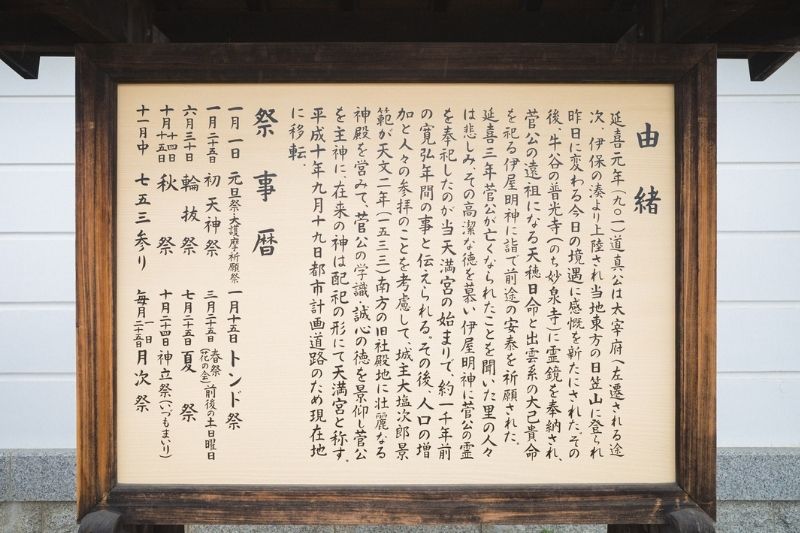 由緒
延喜元年(九〇一)道真公は大宰府へ左遷される途
次、伊保の湊より上陸され当地東方の日笠山に登られ
昨日に変わる今日の境遇に感慨を新たにされた。その
後、牛谷の普光寺(のち妙泉寺)に霊鏡を奉納され、
菅公の遠祖になる天穂日命と出雲系の大己貴命
を祀る伊屋明神に詣で前途の安泰を祈願された。
延喜三年菅公が亡くなられたことを聞いた里の人々
は悲しみ、その高潔な徳を慕い伊屋明神に菅公の霊
を奉祀したのが当天満宮の始まりで、約一千年前
の寛弘年間の事と伝えられる。その後、人口の増
加と人々の参拝のことを考慮して、城主大塩次郎景
範が天文二年(一五三三)南方の旧社殿地に壮麗なる
神殿を営みて、菅公の学識、誠心の徳を景仰し菅公
を主神に、在来の神は配祀の形にて天満宮と称す。
平成十年九月十九日都市計画道路のため現在地
に移転。
祭事暦
一月一日 元旦祭・大護摩祈願祭 一月十五日 トンド祭
一月二十五日 初天神祭 三月二十五日 春祭(花の会)前後の土日曜日
六月三十日 輪抜祭 七月二十五日 夏祭
十月十四日十五日 秋祭 十月二十四日 神立祭(いづもまいり)
十一月中 七五三参り 毎月一日二十五日 月次祭